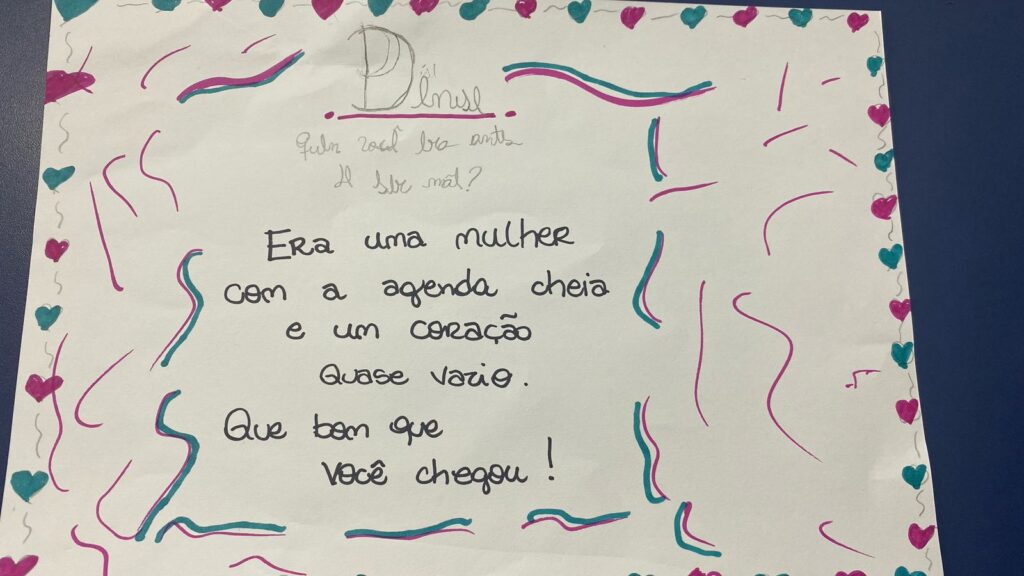 Denise
Quem você era antes
de ser mãe?
Era uma mulher
com a agenda cheia
e um coração
quase vazio.
Que bom que
você chegou!